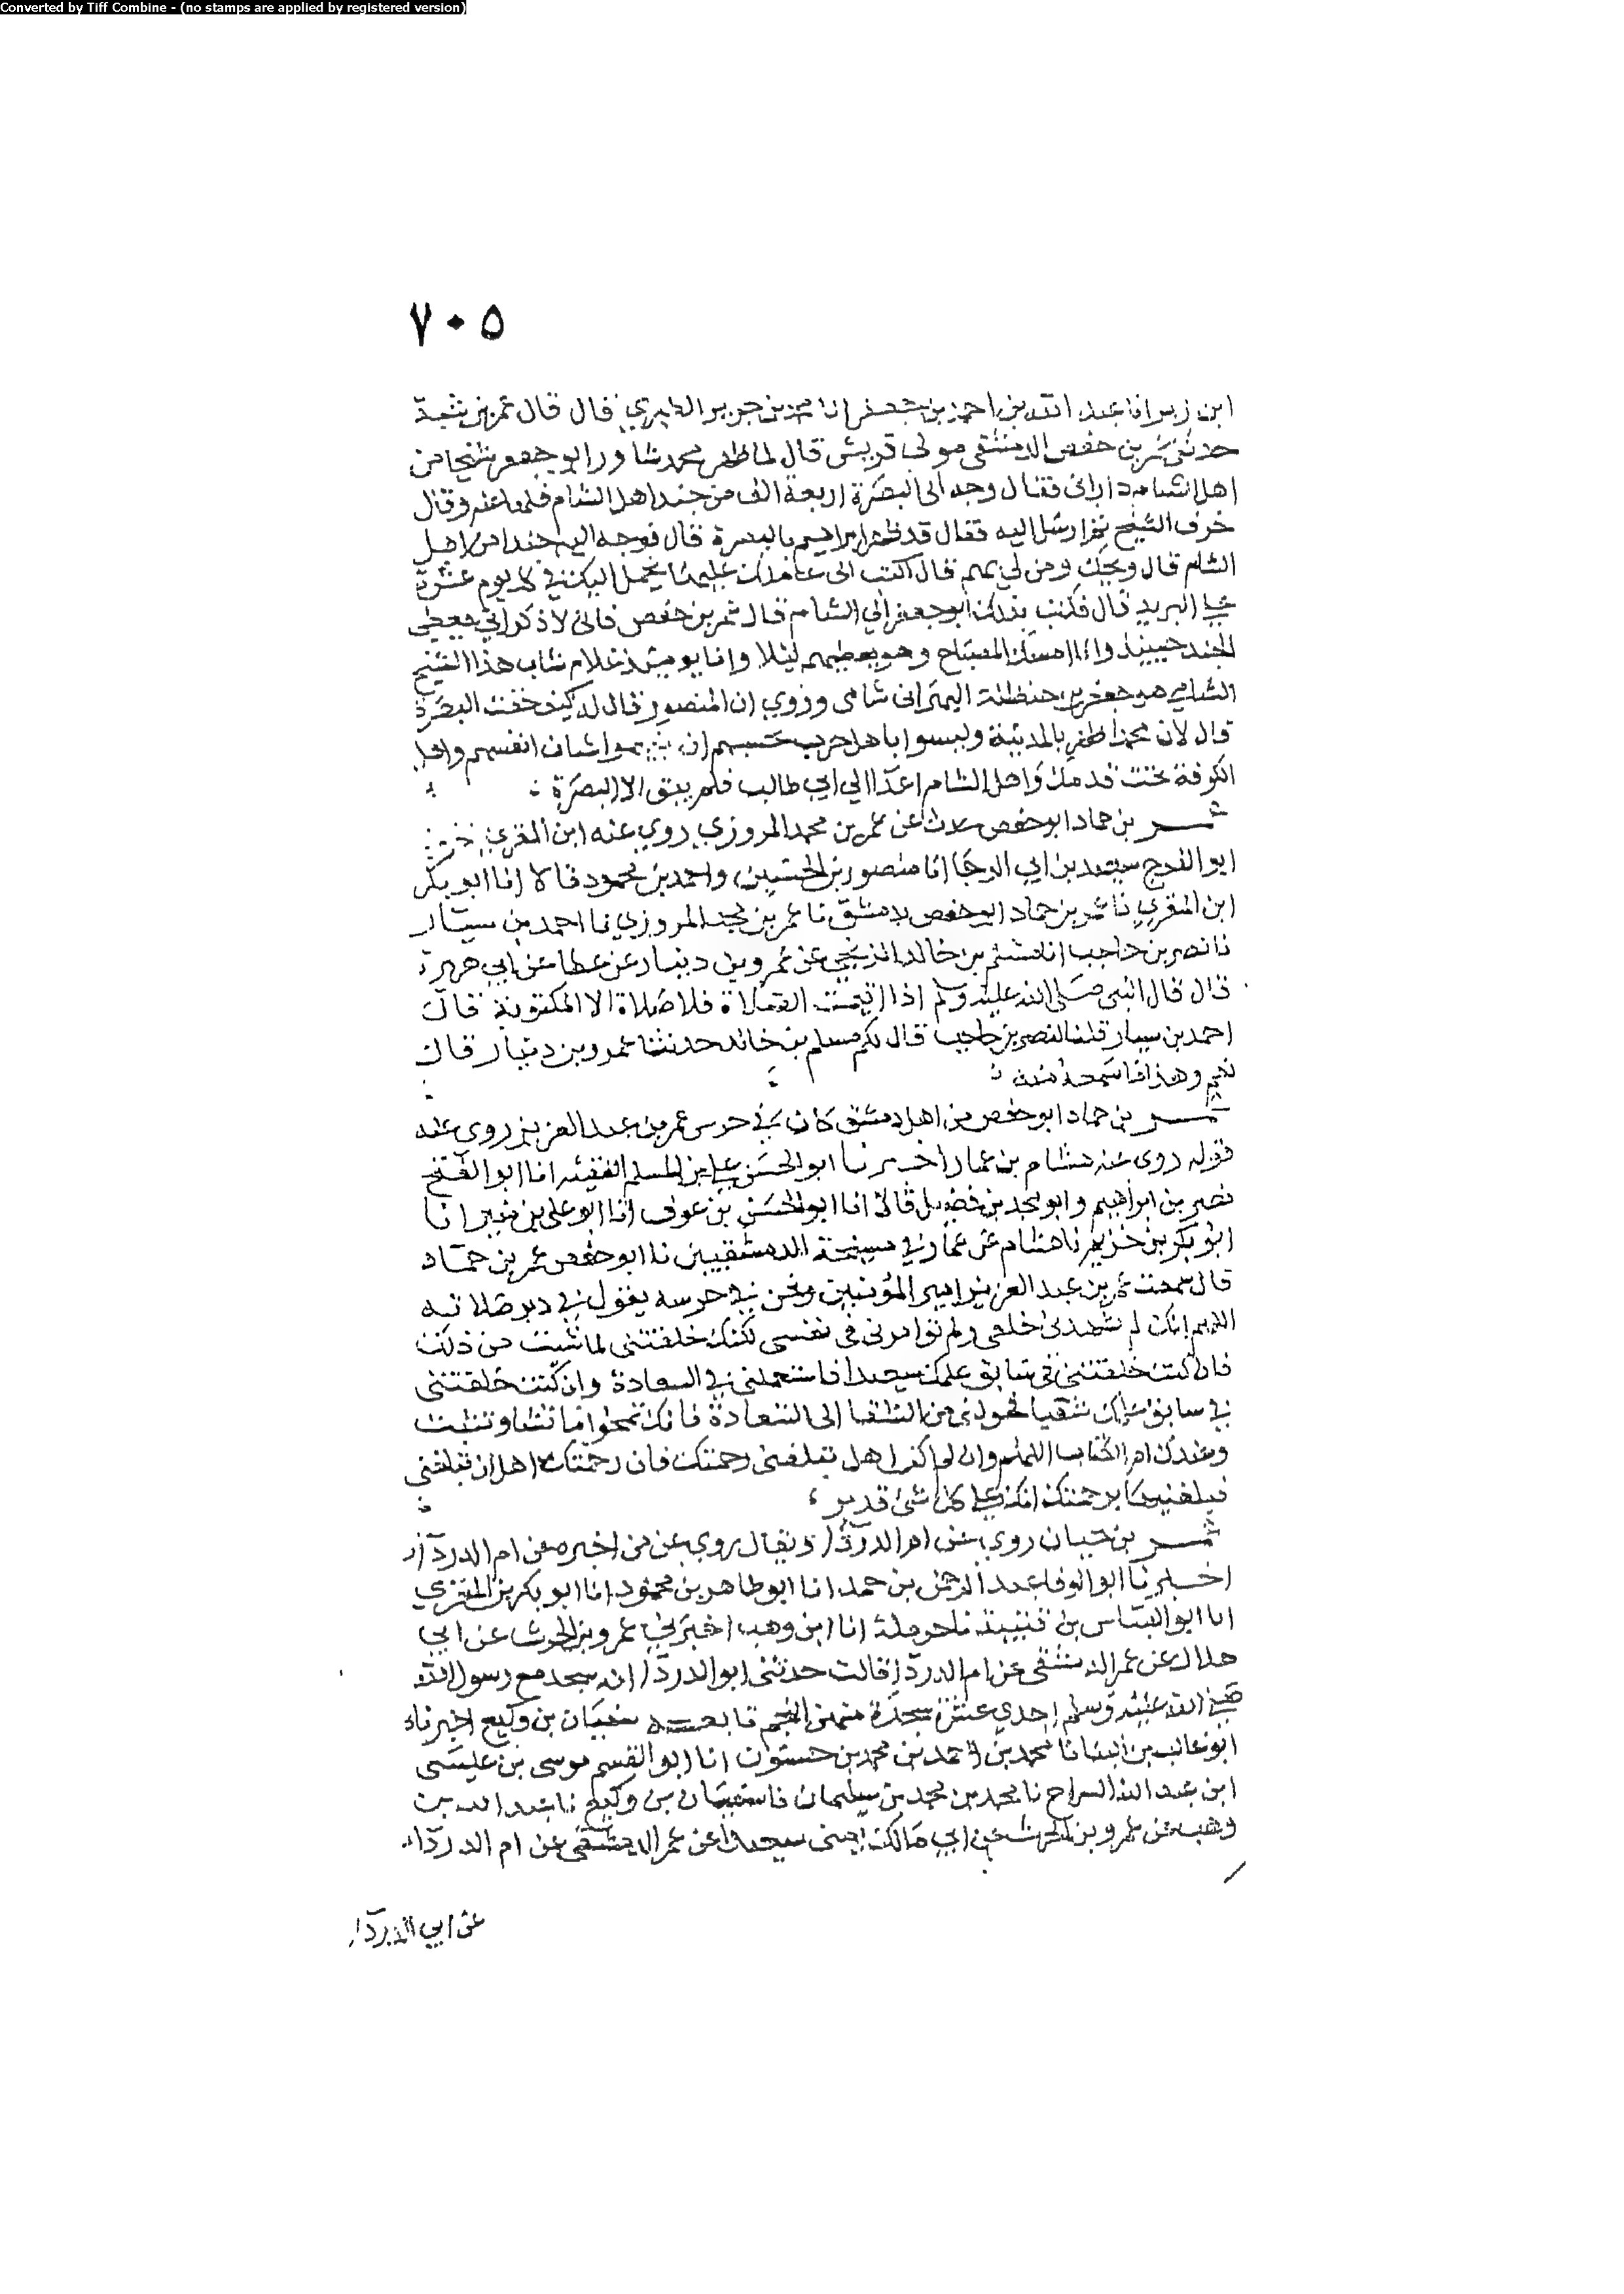 Converted by Tiff Combine - (no stamps are applied by registered version)
٧٠٥
ابن زبر انا عبد الله بن احمد بن جعفر انا محمد بن جرير الطبري قال قال عمر بن شبة
حدثني عمر بن حفص الدمشقي مولى قريش قال لما ظهر محمد شاور ابو جعفر شيخا من
اهل الشام ذا راى فقال وجه الى البصرة اربعة الف من جند اهل الشام فلها عنه وقال
خرف الشيخ ثم ارسل اليه فقال قد ظهر ابراهيم بالبصرة قال فوجه اليه جندا من اهل
الشام قال ويحك ومن لي بهم قال اكتب الى عاملك عليها يحمل اليك في كل يوم عشرة
على البريد قال فكتب بذلك ابو جعفر الي الشام قال عمر بن حفص فاني لاذكر ابي يعطي
الجند حينيذ وانا امسك المصباح وهو يعطيهم ليلا وانا يوميذ غلام شاب هذا الشيخ
الشامي هو جعفر بن حنظلة البهراني شامى وروي ان المنصور قال له كيف خفت البصرة
قال لان محمدا ظهر بالمدينة وليسوا باهل حرب بحسبهم ان يقيموا شان انفسهم واهل
الكوفة تحت قدمك واهل الشام اعدا الي ابي طالب فلم يبق الا البصرة
عمر بن حماد ابو حفص حدث عن عمر بن محمد المروزي روي عنه ابن المقري
ابو الفرج سعيد بن ابي الرجا انا منصور بن الحسين واحمد بن محمود قالا انا ابو بكر
ابن المقري نا عمر بن حماد ابو حفص بدمشق نا عمر بن محمد المروزي نا احمد بن سيار
نا نصر بن حاجب انا مسلم بن خالد الزنجي عن عمرو بن دينار عن عطا عن ابي هريرة
قال قال النبي صلى الله عليه وسلم اذا اقيمت الصلاة فلا صلاة الا المكتوبة قال
احمد بن سيار قلنا لنصر بن حاجب قال لكم مسلم بن خالد حدثنا عمرو بن دينار قال
نعم وهذا انا سمعته منه
عمر بن حماد ابو حفص من اهل دمشق كان في حرس عمر بن عبد العزيز روي عنه
قوله روى عنه هشام بن عمار اخبرنا ابو الحسن علي بن المسلم الفقيه انا ابو الفتح
نصر بن ابراهيم وابو محمد بن فضيل قالا انا ابو الحسن بن عوف انا ابو علي بن منير انا
ابو بكر بن خريم نا هشام بن عمار في مشيخة الدمشقيين نا ابو حفص عمر بن حماد
قال سمعت عمر بن عبد العزيز امير المؤمنين ونحن في حرسه يقول في دبر صلاته
اللهم انك لم تشهدني خلقي ولم توامرني في نفسي لكنك خلقتني لما شيت من ذلك
فان كنت خلقتني في سابق علمك سعيدا فاستعملني في السعادة وان كنت خلقتني
في سابق علمك شقيا فحولني من الشقا الى السعادة فانك تمحوا ما تشا وتثبت
وعندك ام الكتاب اللهم وان لم اكن اهل تبلغني رحمتك فان رحمتك اهل ان تبلغني
فبلغنيها برحمتك انك على كل شئ قدير
عمر بن حيان روي عن ام الدردآ ويقال روي عن من اخبره عن ام الدردآ
اخبرنا ابو الوفا عبد الرحمن بن حمد انا ابو طاهر بن محمود انا ابو بكر بن المقري
انا ابو العباس بن قتيبة نا حرملة انا ابن وهب اخبرني عمرو بن الحرث عن ابي
هلال عن عمر الدمشقي عن ام الدردآ قالت حدثني ابو الدردآ انه سجد مع رسول الله
صلى الله عليه وسلم احدي عشرة سجدة منهن النجم تابعه سفيان بن وكيع اخبرناه
ابو غالب بن البنا انا محمد بن احمد بن محمد بن حسنون انا ابو القسم موسى بن عيسى
ابن عبد الله السراج نا محمد بن محمد بن سليمان نا سفيان بن وكيع نا عبد الله بن
وهب عن عمرو بن الحرث عن ابي مالك يعني سعيدا عن عمر الدمشقي عن ام الدردآء
عن ابي الدردآ